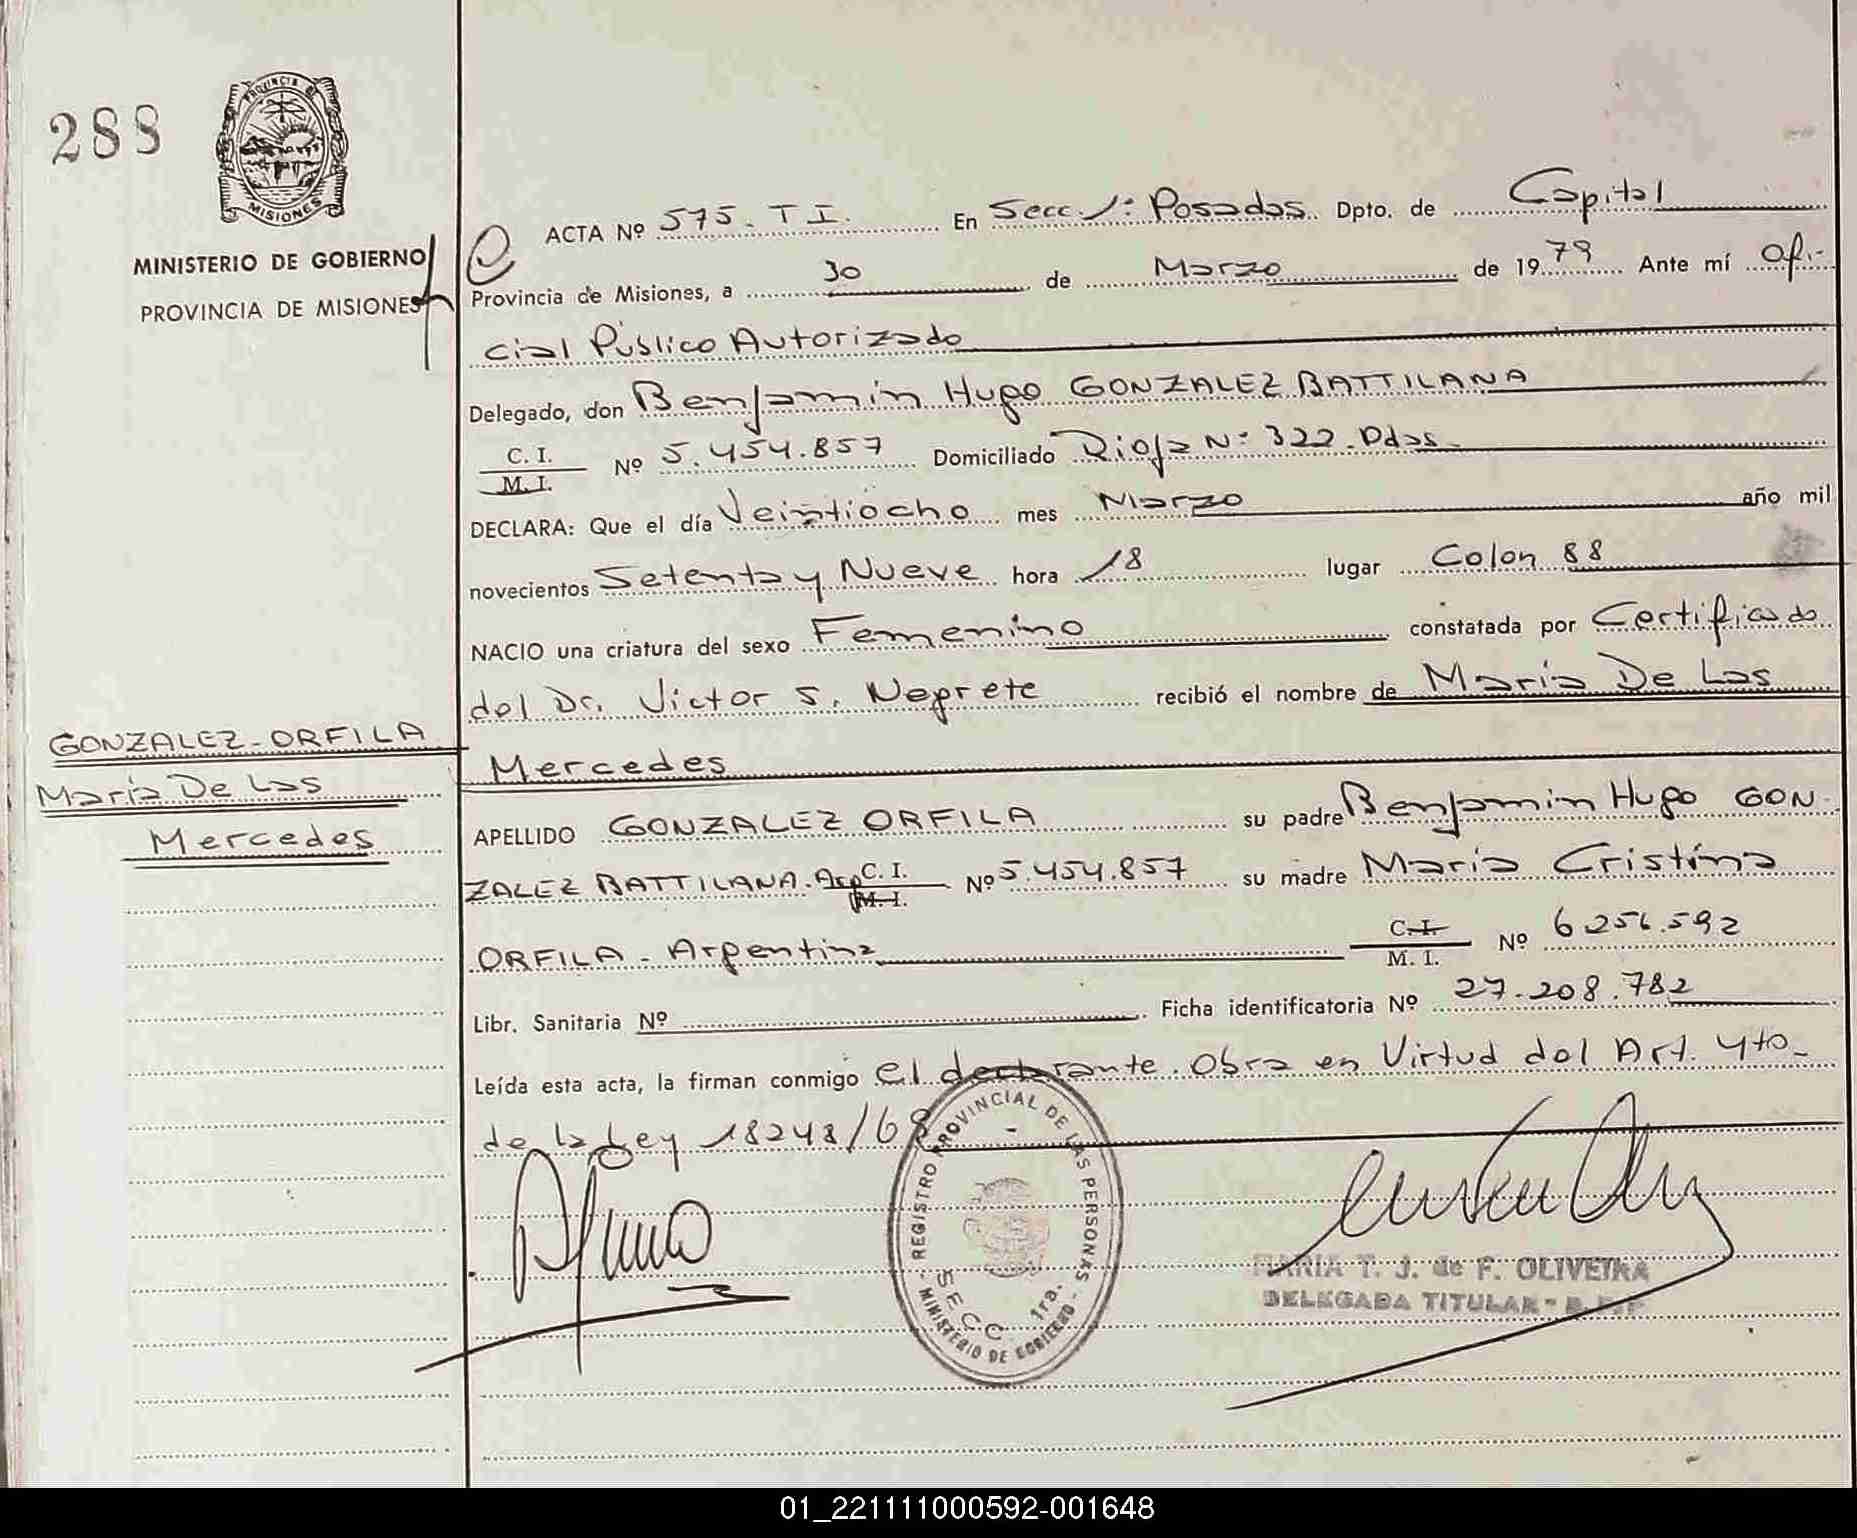 288
PROVINCIA DE
MISIONES
MINISTERIO DE GOBIERNO
PROVINCIA DE MISIONES
ACTA Nº 575. T I. En Secc. 1ª Posadas. Dpto. de Capital
Provincia de Misiones, a 30 de Marzo de 1979 Ante mí Ofi-
cial Público Autorizado
Delegado, don Benjamin Hugo GONZALEZ BATTILANA
C. I.
M. I.
Nº 5.454.857 Domiciliado Rioja Nº 322. Pdas.
DECLARA: Que el día Veintiocho mes Marzo año mil
novecientos Setenta y Nueve hora 18 lugar Colon 88
NACIO una criatura del sexo Femenino constatada por Certificado
del Dr. Victor S. Negrete recibió el nombre de María De Las
Mercedes
GONZALEZ-ORFILA
María De Las
Mercedes
APELLIDO GONZALEZ ORFILA su padre Benjamin Hugo GON-
ZALEZ BATTILANA. Arg C. I.
M. I.
Nº 5.454.857 su madre María Cristina
ORFILA - Argentina C. I.
M. I.
Nº 6.256.592
Libr. Sanitaria Nº Ficha identificatoria Nº 27.208.782
Leída esta acta, la firman conmigo el declarante. Obra en Virtud del Art. 4to-
de la Ley 18248/68
REGISTRO PROVINCIAL DE LAS PERSONAS
SECC 1ra.
MINISTERIO DE GOBIERNO
MARIA T. J. de F. OLIVEIRA
DELEGADA TITULAR - R.P.P
01_221111000592-001648